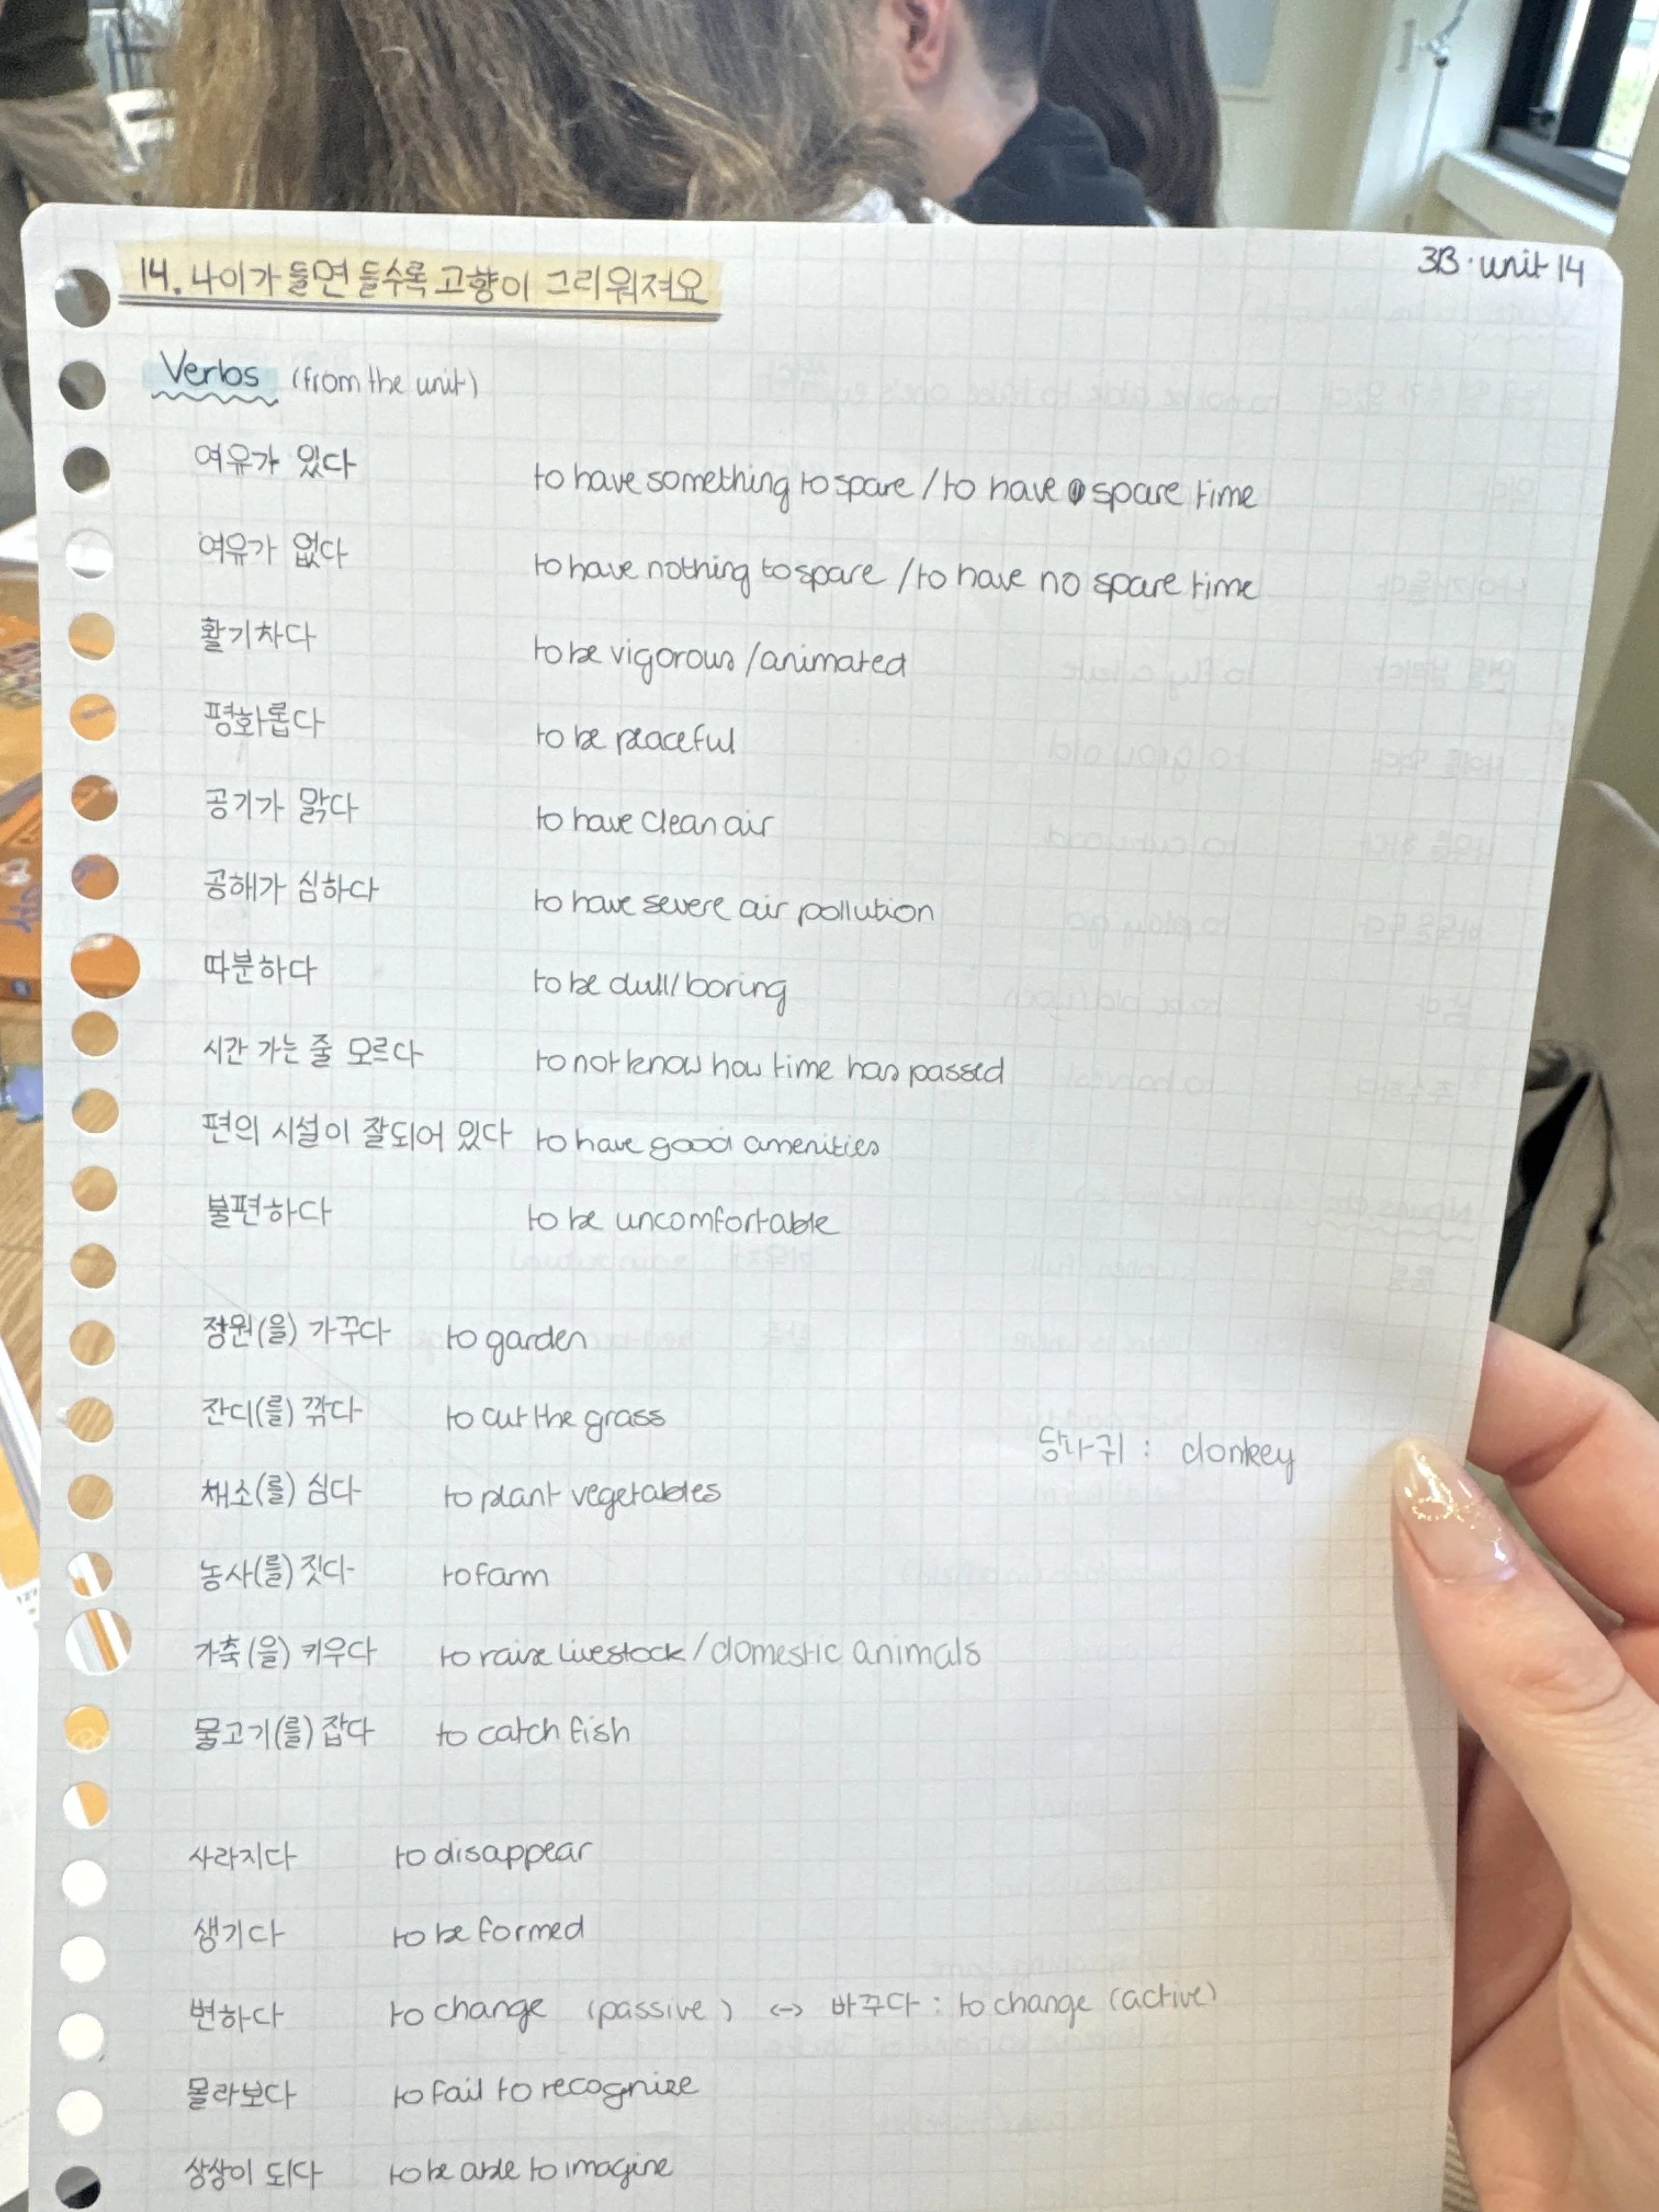 3B · unit 14
14. 나이가 들면 들수록 고향이 그리워져요
Verbs (from the unit)
여유가 있다 to have something to spare / to have spare time
여유가 없다 to have nothing to spare / to have no spare time
활기차다 to be vigorous / animated
평화롭다 to be peaceful
공기가 맑다 to have clean air
공해가 심하다 to have severe air pollution
따분하다 to be dull / boring
시간 가는 줄 모르다 to not know how time has passed
편의 시설이 잘되어 있다 to have good amenities
불편하다 to be uncomfortable
정원(을) 가꾸다 to garden
잔디(를) 깎다 to cut the grass
당나귀 : donkey
채소(를) 심다 to plant vegetables
농사(를) 짓다 to farm
가축(을) 키우다 to raise livestock / domestic animals
물고기(를) 잡다 to catch fish
사라지다 to disappear
생기다 to be formed
변하다 to change (passive) <-> 바꾸다 : to change (active)
몰라보다 to fail to recognize
상상이 되다 to be able to imagine